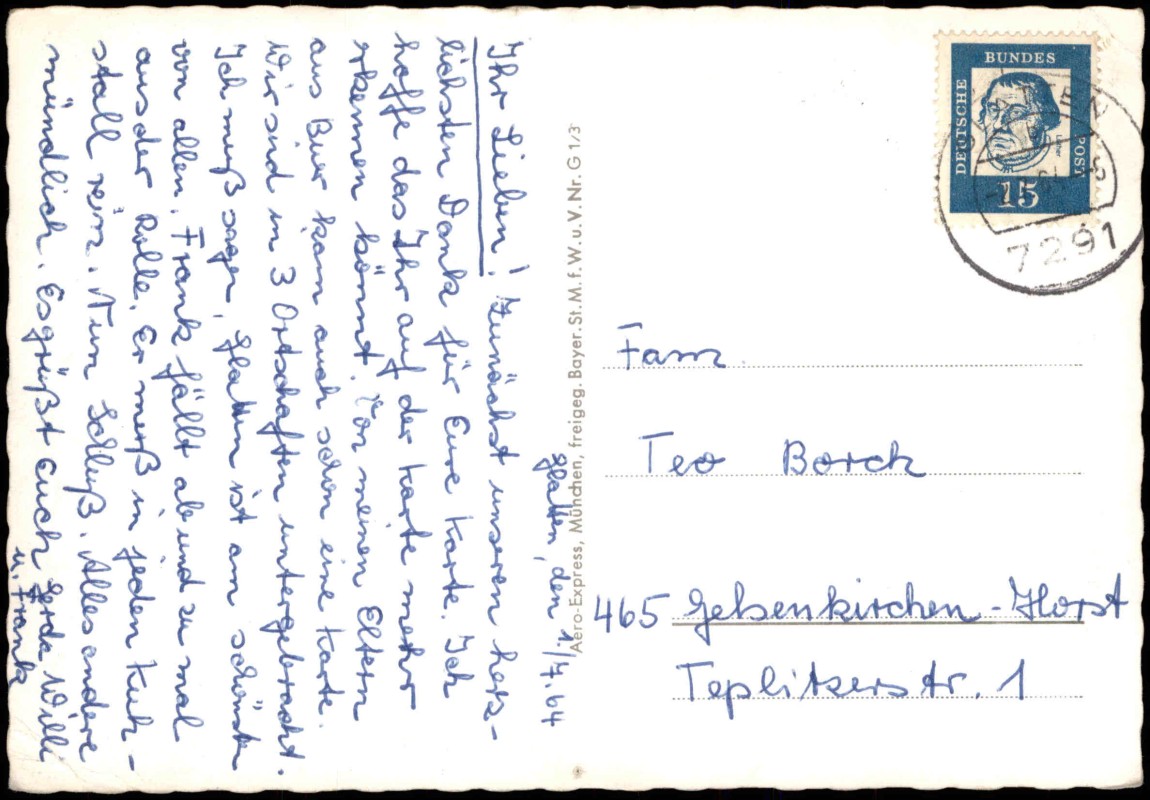 Glatten, den 1./7.64
Ihr Lieben! Zunächst unseren herz-
lichsten Dank für Eure Karte. Ich
hoffe das Ihr auf der Karte mehr
erkennen könnt. Von meinen Eltern
aus Buer kam auch schon eine Karte.
Wir sind in 3 Ortschaften untergebracht.
Ich muß sagen, Glatten ist am schönsten
von allen. Frank fällt ab und zu mal
aus der Rolle. Er muß in jeden Kuh-
stall rein. Nun Schluß. Alles andere
mündlich. Es grüßt Euch Gerda Willi
u. Frank
Aero-Express, München, freigeg. Bayer. St. M. f. W. u. V. Nr. G 1/3
DEUTSCHE
BUNDES
POST
15
7291
Fam.
Teo Borck
465 Gelsenkirchen-Horst
Teplitzerstr. 1